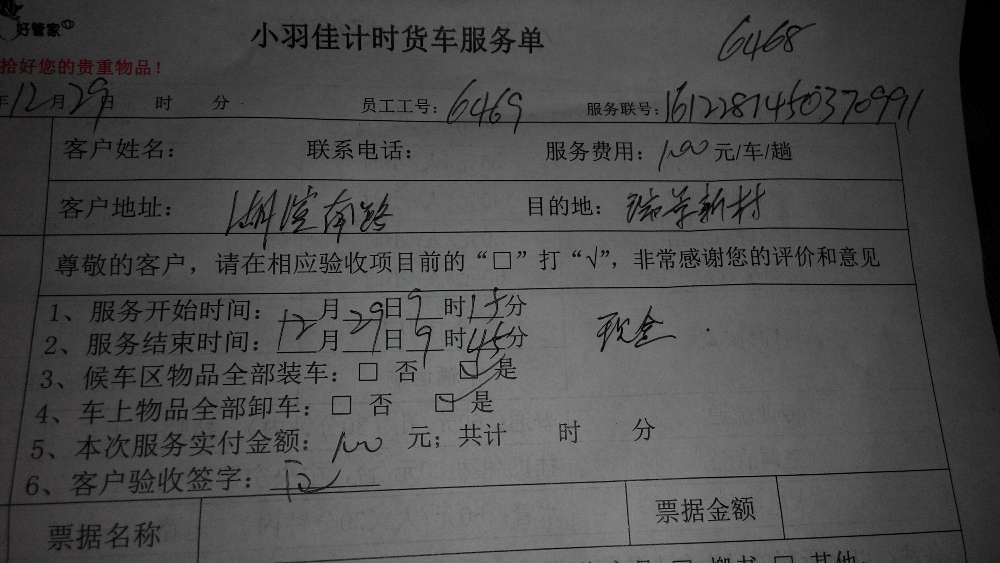 好管家
小羽佳计时货车服务单
6468
拾好您的贵重物品！
年12月29日 时 分 员工工号：6469 服务联号：161228145037099 1
客户姓名： 联系电话： 服务费用：100元/车/趟
客户地址：湖滨南路 目的地：瑞景新村
尊敬的客户，请在相应验收项目前的“□”打“√”，非常感谢您的评价和意见
1、服务开始时间：12月29日9时15分
2、服务结束时间：12月29日9时45分
现金
3、候车区物品全部装车：□ 否 ☑ 是
4、车上物品全部卸车：□ 否 ☑ 是
5、本次服务实付金额：100 元；共计 时 分
6、客户验收签字：
票据名称 票据金额
□ 搬书 □ 其他